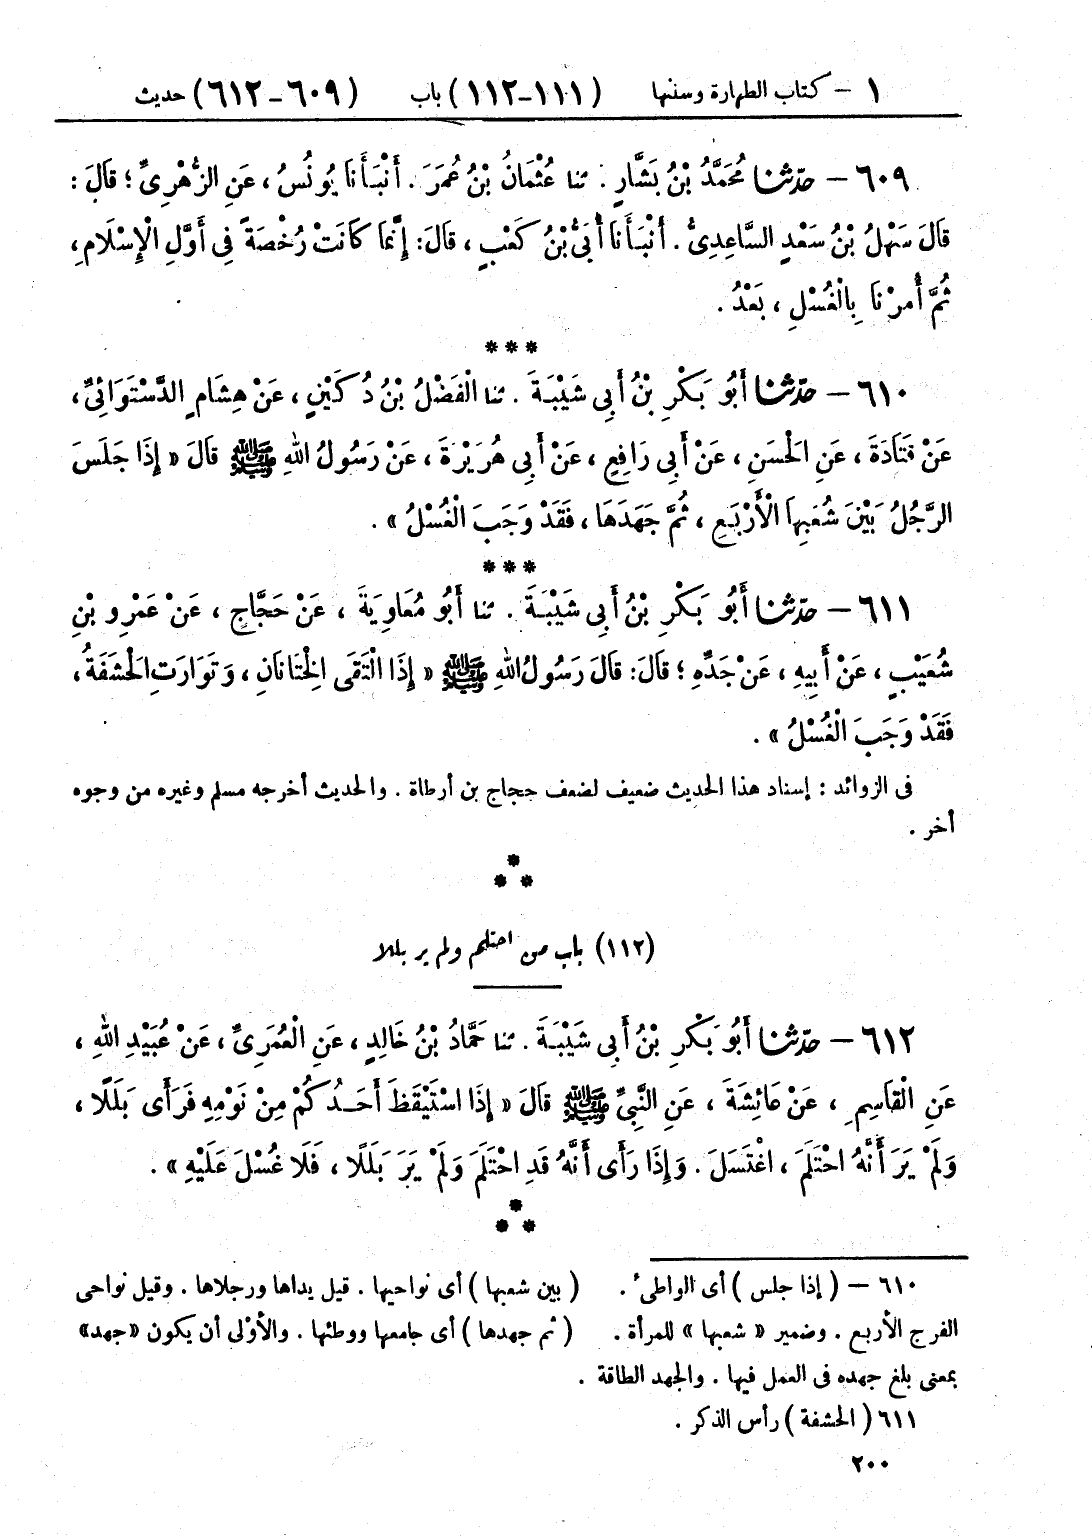 ١ – كتاب الطهارة وسننها (١١١-١١٢) باب (٦٠٩-٦١٢) حديث
٦٠٩ – حدّثنا مُحَمَّدُ بْنُ بَشَّارٍ . ثنا عُثْمَانُ بْنُ عُمَرَ . أَنْبَأَنَا يُونُسُ ، عَنِ الزُّهْرِىِّ ؛ قَالَ :
قَالَ سَهْلُ بْنُ سَعْدٍ السَّاعِدِىُّ . أَنْبَأَنَا أُبَىُّ بْنُ كَعْبٍ ، قَالَ: إِنَّمَا كَانَتْ رُخْصَةً فِى أَوَّلِ الْإِسْلَامِ،
ثُمَّ أُمِرْنَا بِالْغُسْلِ ، بَعْدُ .
***
٦١٠ – حدّثنا أَبُو بَكْرِ بْنُ أَبِى شَيْبَةَ . ثنا الْفَضْلُ بْنُ دُكَيْنٍ ، عَنْ هِشَامٍ الدَّسْتَوَائِىِّ،
عَنْ قَتَادَةَ ، عَنِ الْحَسَنِ ، عَنْ أَبِى رَافِعٍ ، عَنْ أَبِى هُرَيْرَةَ ، عَنْ رَسُولُ اللهِ ﷺ قَالَ « إِذَا جَلَسَ
الرَّجُلُ بَيْنَ شُعَبِهَا الْأَرْبَعِ ، ثُمَّ جَهَدَهَا ، فَقَدْ وَجَبَ الْغُسْلُ » .
***
٦١١ – حدّثنا أَبُو بَكْرِ بْنُ أَبِى شَيْبَةَ . ثنا أَبُو مُعَاوِيَةَ ، عَنْ حَجَّاجٍ ، عَنْ عَمْرِو بْنِ
شُعَيْبٍ ، عَنْ أَبِيهِ ، عَنْ جَدِّهِ ؛ قَالَ: قَالَ رَسُولُ اللهِ ﷺ « إِذَا الْتَقَى الْخِتَانَانِ ، وَتَوَارَتِ الْحَشَفَةُ ،
فَقَدْ وَجَبَ الْغُسْلُ » .
فى الزوائد : إسناد هذا الحديث ضعيف لضعف حجاج بن أرطاة . والحديث أخرجه مسلم وغيره من وجوه
أخر .
***
(١١٢) باب من احتلم ولم ير بللا
٦١٢ – حدّثنا أَبُو بَكْرِ بْنُ أَبِى شَيْبَةَ . ثنا حَمَّادُ بْنُ خَالِدٍ ، عَنِ الْعُمَرِىِّ ، عَنْ عُبَيْدِ اللهِ ،
عَنِ الْقَاسِمِ ، عَنْ عَائِشَةَ ، عَنِ النَّبِىِّ ﷺ قَالَ « إِذَا اسْتَيْقَظَ أَحَدُكُمْ مِنْ نَوْمِهِ فَرَأَى بَلَلًا ،
وَلَمْ يَرَ أَنَّهُ احْتَلَمَ ، اغْتَسَلَ . وَإِذَا رَأَى أَنَّهُ قَدِ احْتَلَمَ وَلَمْ يَرَ بَلَلًا ، فَلَا غُسْلَ عَلَيْهِ » .
***
٦١٠ – ( إذا جلس ) أى الواطئ . ( بين شعبها ) أى نواحيها . قيل يداها ورجلاها . وقيل نواحى
الفرج الأربع . وضمير « شعبها » للمرأة . ( ثم جهدها ) أى جامعها ووطئها . والأولى أن يكون «جهد»
بمعنى بلغ جهده فى العمل فيها . والجهد الطاقة .
٦١١ ( الحشفة ) رأس الذكر .
٢٠٠